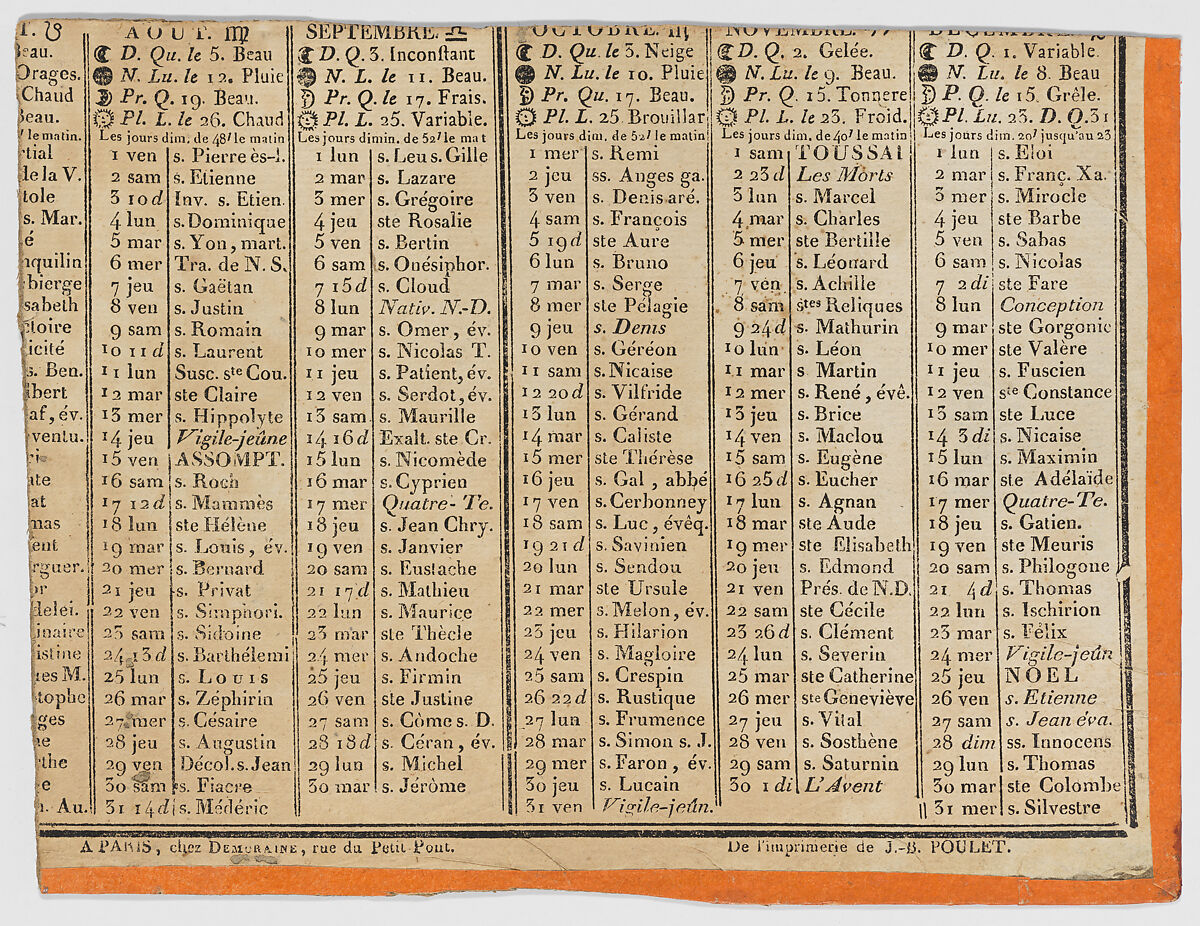 eau.
Orages.
Chaud
Beau.
le matin.
tial
de la V.
tole
s. Mar.
é
nquilin
bierge
sabeth
ctoire
icité
s. Ben.
lbert
af, év.
ventu.
at
mas
ent
rguer.
or
delei.
inaire
istine
ues M.
tophe
ges
ne
the
e
n. Au.
AOUT. ♍
D. Qu. le 5. Beau
N. Lu. le 12. Pluie
Pr. Q. 19. Beau.
Pl. L. le 26. Chaud
Les jours dimin. de 48' le matin
1 ven s. Pierre ès-l.
2 sam s. Etienne
3 10 d Inv. s. Etien.
4 lun s. Dominique
5 mar s. Yon, mart.
6 mer Tra. de N. S.
7 jeu s. Gaëtan
8 ven s. Justin
9 sam s. Romain
10 11 d s. Laurent
11 lun Susc. ste Cou.
12 mar ste Claire
13 mer s. Hippolyte
14 jeu Vigile-jeûne
15 ven ASSOMPT.
16 sam s. Roch
17 12 d s. Mammès
18 lun ste Hélène
19 mar s. Louis, év.
20 mer s. Bernard
21 jeu s. Privat
22 ven s. Simphori.
23 sam s. Sidoine
24 13 d s. Barthélemi
25 lun s. LOUIS
26 mar s. Zéphirin
27 mer s. Césaire
28 jeu s. Augustin
29 ven Décol. s. Jean
30 sam s. Fiacre
31 14 d s. Médéric
SEPTEMBRE. ♎
D. Q. 3. Inconstant
N. L. le 11. Beau.
Pr. Q. le 17. Frais.
Pl. L. 25. Variable.
Les jours dimin. de 52' le mat
1 lun s. Leu s. Gille
2 mar s. Lazare
3 mer s. Grégoire
4 jeu ste Rosalie
5 ven s. Bertin
6 sam s. Onésiphor.
7 15 d s. Cloud
8 lun Nativ. N.-D.
9 mar s. Omer, év.
10 mer s. Nicolas T.
11 jeu s. Patient, év.
12 ven s. Serdot, év.
13 sam s. Maurille
14 16 d Exalt. ste Cr.
15 lun s. Nicomède
16 mar s. Cyprien
17 mer Quatre-Te.
18 jeu s. Jean Chry.
19 ven s. Janvier
20 sam s. Eustache
21 17 d s. Mathieu
22 lun s. Maurice
23 mar ste Thècle
24 mer s. Andoche
25 jeu s. Firmin
26 ven ste Justine
27 sam s. Côme s. D.
28 18 d s. Céran, év.
29 lun s. Michel
30 mar s. Jérôme
OCTOBRE. ♏
D. Qu. le 3. Neige
N. Lu. le 10. Pluie
Pr. Qu. 17. Beau.
Pl. L. 25 Brouillar
Les jours dimin. de 52' le matin
1 mer s. Remi
2 jeu ss. Anges ga.
3 ven s. Denis aré.
4 sam s. François
5 19 d ste Aure
6 lun s. Bruno
7 mar s. Serge
8 mer ste Pélagie
9 jeu s. Denis
10 ven s. Géréon
11 sam s. Nicaise
12 20 d s. Vilfride
13 lun s. Gérand
14 mar s. Caliste
15 mer ste Thérèse
16 jeu s. Gal, abbé
17 ven s. Cerbonney
18 sam s. Luc, évêq.
19 21 d s. Savinien
20 lun s. Sendou
21 mar ste Ursule
22 mer s. Melon, év.
23 jeu s. Hilarion
24 ven s. Magloire
25 sam s. Crespin
26 22 d s. Rustique
27 lun s. Frumence
28 mar s. Simon s. J.
29 mer s. Faron, év.
30 jeu s. Lucain
31 ven Vigile-jeûn.
NOVEMBRE.
D. Q. 2. Gelée.
N. L. le 9. Beau.
Pr. Q. 15. Tonnere
Pl. L. le 23. Froid.
Les jours dim. de 40' le matin
1 sam TOUSSAI
2 23 d Les Morts
3 lun s. Marcel
4 mar s. Charles
5 mer ste Bertille
6 jeu s. Léonard
7 ven s. Achille
8 sam stes Reliques
9 24 d s. Mathurin
10 lun s. Léon
11 mar s. Martin
12 mer s. René, évê.
13 jeu s. Brice
14 ven s. Maclou
15 sam s. Eugène
16 25 d s. Eucher
17 lun s. Agnan
18 mar ste Aude
19 mer ste Elisabeth
20 jeu s. Edmond
21 ven Prés. de N.D.
22 sam ste Cécile
23 26 d s. Clément
24 lun s. Severin
25 mar ste Catherine
26 mer ste Geneviève
27 jeu s. Vital
28 ven s. Sosthène
29 sam s. Saturnin
30 1 di L'Avent
DECEMBRE.
D. Q. 1. Variable.
N. Lu. le 8. Beau
P. Q. le 15. Grêle.
Pl. Lu. 23. D. Q. 31
Les jours dim. 20' jusqu'au 23
1 lun s. Eloi
2 mar s. Franç. Xa.
3 mer s. Mirocle
4 jeu ste Barbe
5 ven s. Sabas
6 sam s. Nicolas
7 2 di ste Fare
8 lun Conception
9 mar ste Gorgonie
10 mer ste Valère
11 jeu s. Fuscien
12 ven ste Constance
13 sam ste Luce
14 3 di s. Nicaise
15 lun s. Maximin
16 mar ste Adélaïde
17 mer Quatre-Te.
18 jeu s. Gatien.
19 ven ste Meuris
20 sam s. Philogone
21 4 d s. Thomas
22 lun s. Ischirion
23 mar s. Félix
24 mer Vigile-jeûn
25 jeu NOEL
26 ven s. Etienne
27 sam s. Jean éva.
28 dim ss. Innocens
29 lun s. Thomas
30 mar ste Colombe
31 mer s. Silvestre
A PARIS, chez DEMORAINE, rue du Petit Pont.
De l'imprimerie de J.-B. POULET.